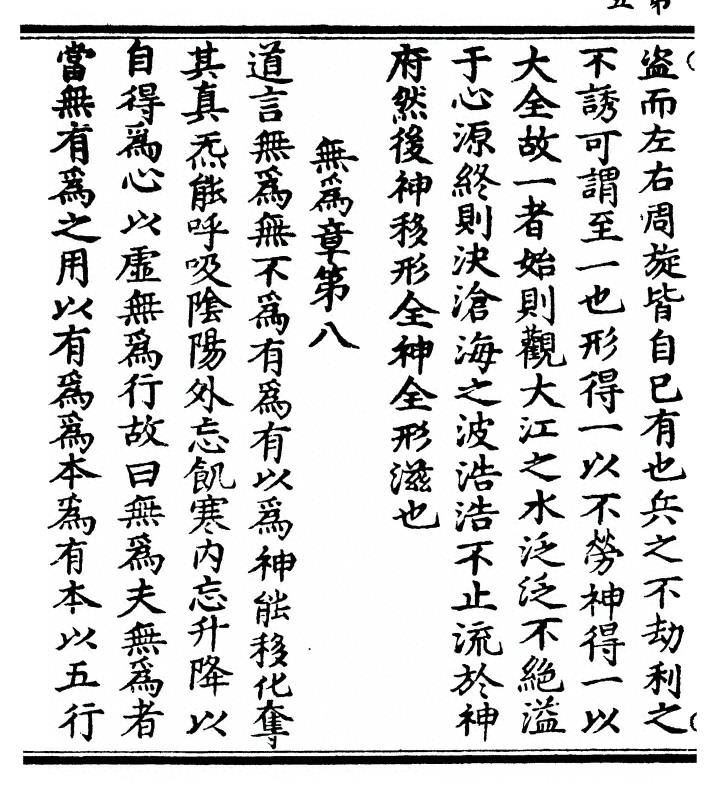 盜而左右周旋皆自已有也兵之不劫利之
不誘可謂至一也形得一以不勞神得一以
大全故一者始則觀大江之水泛泛不絕溢
于心源終則決滄海之波浩浩不止流於神
府然後神移形全神全形滋也
無爲章第八
道言無爲無不爲有爲有以爲神能移化奪
其真炁能呼吸陰陽外忘飢寒内忘升降以
自得爲心以虛無爲行故曰無爲夫無爲者
當無有爲之用以有爲爲本爲有本以五行